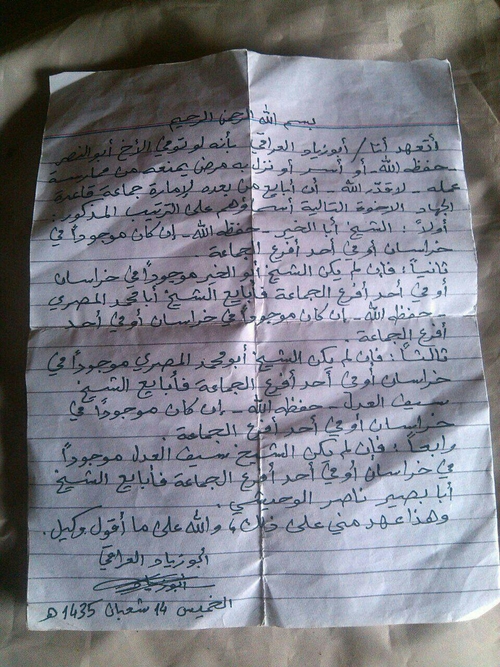 بسم الله الرحمن الرحيم
أتعهد أنا / أبو زياد العراقي بأنه لو توفي الأخ أبو النصر
- حفظه الله - أو أسر أو نزل به مرض يمنعه من ممارسة
عمله - لا قدّر الله - أن أبايع من بعده لإمارة جماعة قاعدة
الجهاد الإخوة التالية أسماؤهم على الترتيب المذكور :
أولاً : الشيخ أبا الخير - حفظه الله - إن كان موجوداً في
خراسان أو في أحد أفرع الجماعة .
ثانياً : فإن لم يكن الشيخ أبو الخير موجوداً في خراسان
أو في أحد أفرع الجماعة فأبايع الشيخ أبا محمد المصري
- حفظه الله - إن كان موجوداً في خراسان أو في أحد
أفرع الجماعة .
ثالثاً : فإن لم يكن الشيخ أبو محمد المصري موجوداً في
خراسان أو في أحد أفرع الجماعة فأبايع الشيخ
سيف العدل - حفظه الله - إن كان موجوداً في
خراسان أو في أحد أفرع الجماعة .
رابعاً : فإن لم يكن الشيخ سيف العدل موجوداً
في خراسان أو في أحد أفرع الجماعة فأبايع الشيخ
أبا بصير ناصر الوحيشي .
وهذا عهد مني على ذلك ، والله على ما أقول وكيل .
أبو زياد العراقي
أبو زياد
الخميس 14 شعبان 1435 هـ